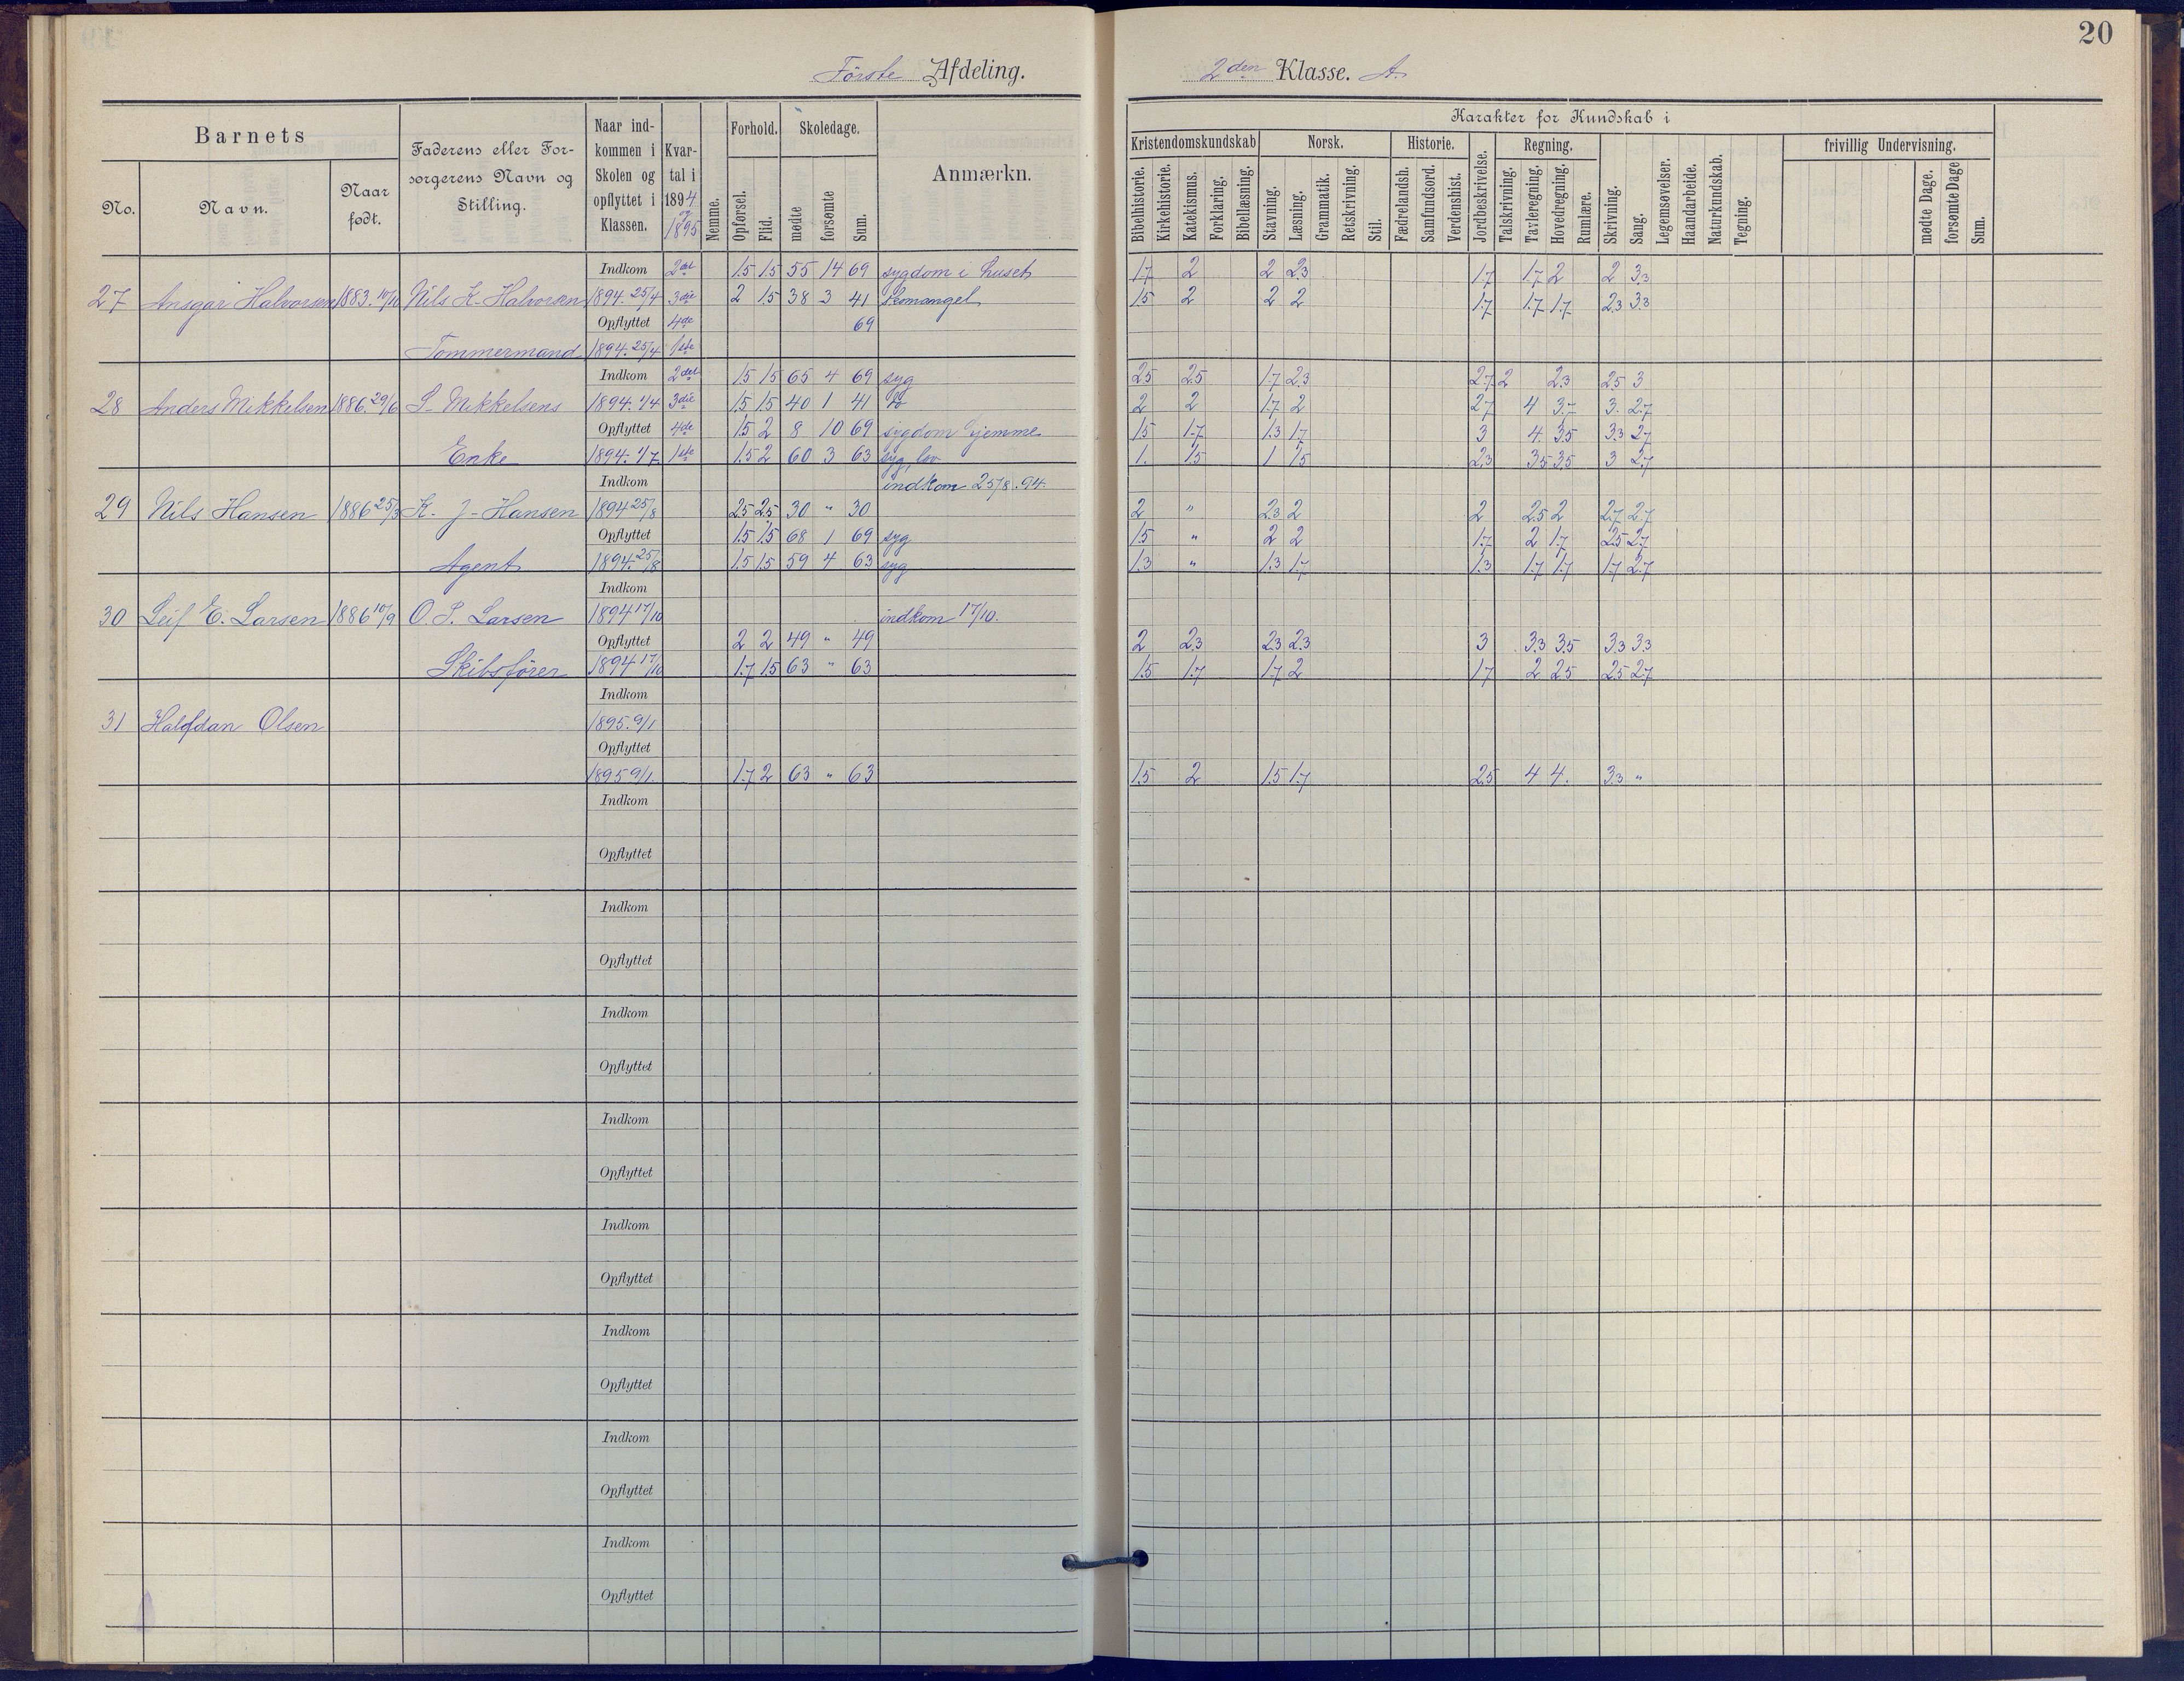 20
Første Afdeling.
2den Klasse. A.
Barnets
No.
Navn.
Naar født.
Faderens eller Forsorgerens Navn og Stilling.
Naar indkommen i Skolen og opflyttet i Klassen.
Kvartal i 1894 / 1895
Nemme.
Forhold.
Opførsel.
Flid.
Skoledage.
mødte
forsømte
Sum.
Anmærkn.
Karakter for Kundskab i
Kristendomskundskab
Bibelhistorie.
Kirkehistorie.
Katekismus.
Forklaring.
Bibellæsning.
Norsk.
Stavning.
Læsning.
Grammatik.
Retskrivning.
Stil.
Historie.
Fædrelandsh.
Samfundsord.
Verdenshist.
Jordbeskrivelse.
Regning.
Talskrivning.
Tavleregning.
Hovedregning.
Rumlære.
Skrivning.
Sang.
Legemsøvelser.
Haandarbeide.
Naturkundskab.
Tegning.
frivillig Undervisning.
mødte Dage.
forsømte Dage
Sum.
Indkom 2det 1.5 1.5 55 14 69 sygdom i huset 1.7 2 2 2.3 1.7 1.7 2 2 3.3
27 Ansgar Halvorsen 1883. 10/10 Nils K. Halvorsen 1894. 25/4 3die 2 1.5 38 3 41 Skomangel 1.5 2 2 2 1.7 1.7 1.7 2.3 3.3
Opflyttet 4de 69
Tømmermand 1894. 25/4 1ste
Indkom 2det 1.5 1.5 65 4 69 syg 2.5 2.5 1.7 2.3 2.7 2 2.3 2.5 3
28 Anders Mikkelsen 1886. 29/6 S. Mikkelsens 1894. 1/4 3die 1.5 1.5 40 1 41 2 2 1.7 2 2.7 4 3.7 3. 2.7
Opflyttet 4de 1.5 2 8 10 69 sygdom hjemme 1.5 1.7 1.3 1.7 3 4. 3.5 3.3 2.7
Enke 1894. 1/7 1ste 1.5 2 60 3 63 syg, lov 1. 1.5 1 1.5 2.3 3.5 3.5 3 2.7
Indkom indkom 25/8. 94.
29 Nils Hansen 1886 25/3 K. J. Hansen 1894 25/8 2.5 2.5 30 " 30 2 " 2.3 2 2 2.5 2 2.7 2.7
Opflyttet 1.5 1.5 68 1 69 syg 1.5 " 2 2 1.7 2 1.7 2.5 2.7
Agent 1894. 25/8 1.5 1.5 59 4 63 syg 1.3 " 1.3 1.7 1.3 1.7 1.7 1.7 2.7
Indkom
30 Leif E. Larsen 1886 10/9 O. S. Larsen 1894 17/10 indkom 17/10.
Opflyttet 2 2 49 " 49 2 2.3 2.3 2.3 3 3.3 3.5 3.3 3.3
Skibsfører 1894 17/10 1.7 1.5 63 " 63 1.5 1.7 1.7 2 1.7 2 2.5 2.5 2.7
Indkom
31 Halfdan Olsen 1895. 9/1
Opflyttet
1895 9/1. 1.7 2 63 " 63 1.5 2 1.5 1.7 2.5 4 4. 3.3 "
Indkom
Opflyttet
Indkom
Opflyttet
Indkom
Opflyttet
Indkom
Opflyttet
Indkom
Opflyttet
Indkom
Opflyttet
Indkom
Opflyttet
Indkom
Opflyttet